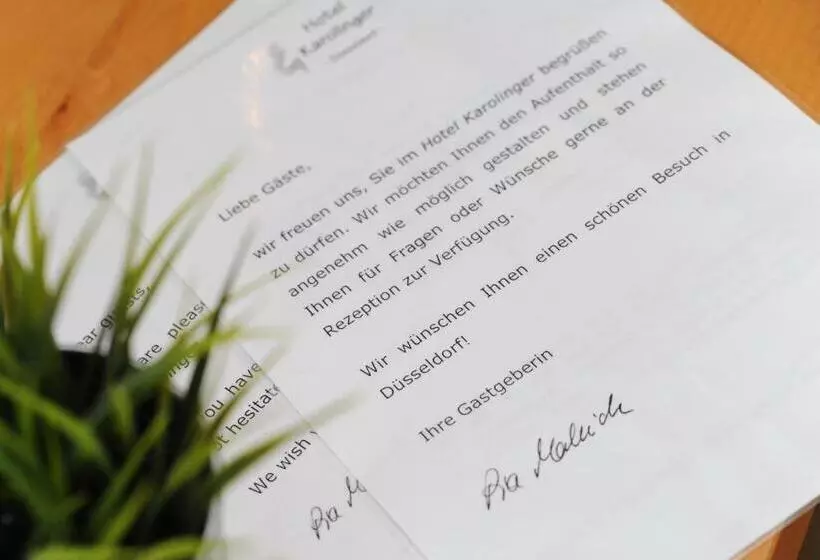 Hotel
Karolinger
Düsseldorf
Liebe Gäste,
wir freuen uns, Sie im Hotel Karolinger begrüßen
zu dürfen. Wir möchten Ihnen den Aufenthalt so
angenehm wie möglich gestalten und stehen
Ihnen für Fragen oder Wünsche gerne an der
Rezeption zur Verfügung.
Wir wünschen Ihnen einen schönen Besuch in
Düsseldorf!
Ihre Gastgeberin
Pia
ear guests,
are please
ou have
ot hesitate
We wish
Pia M